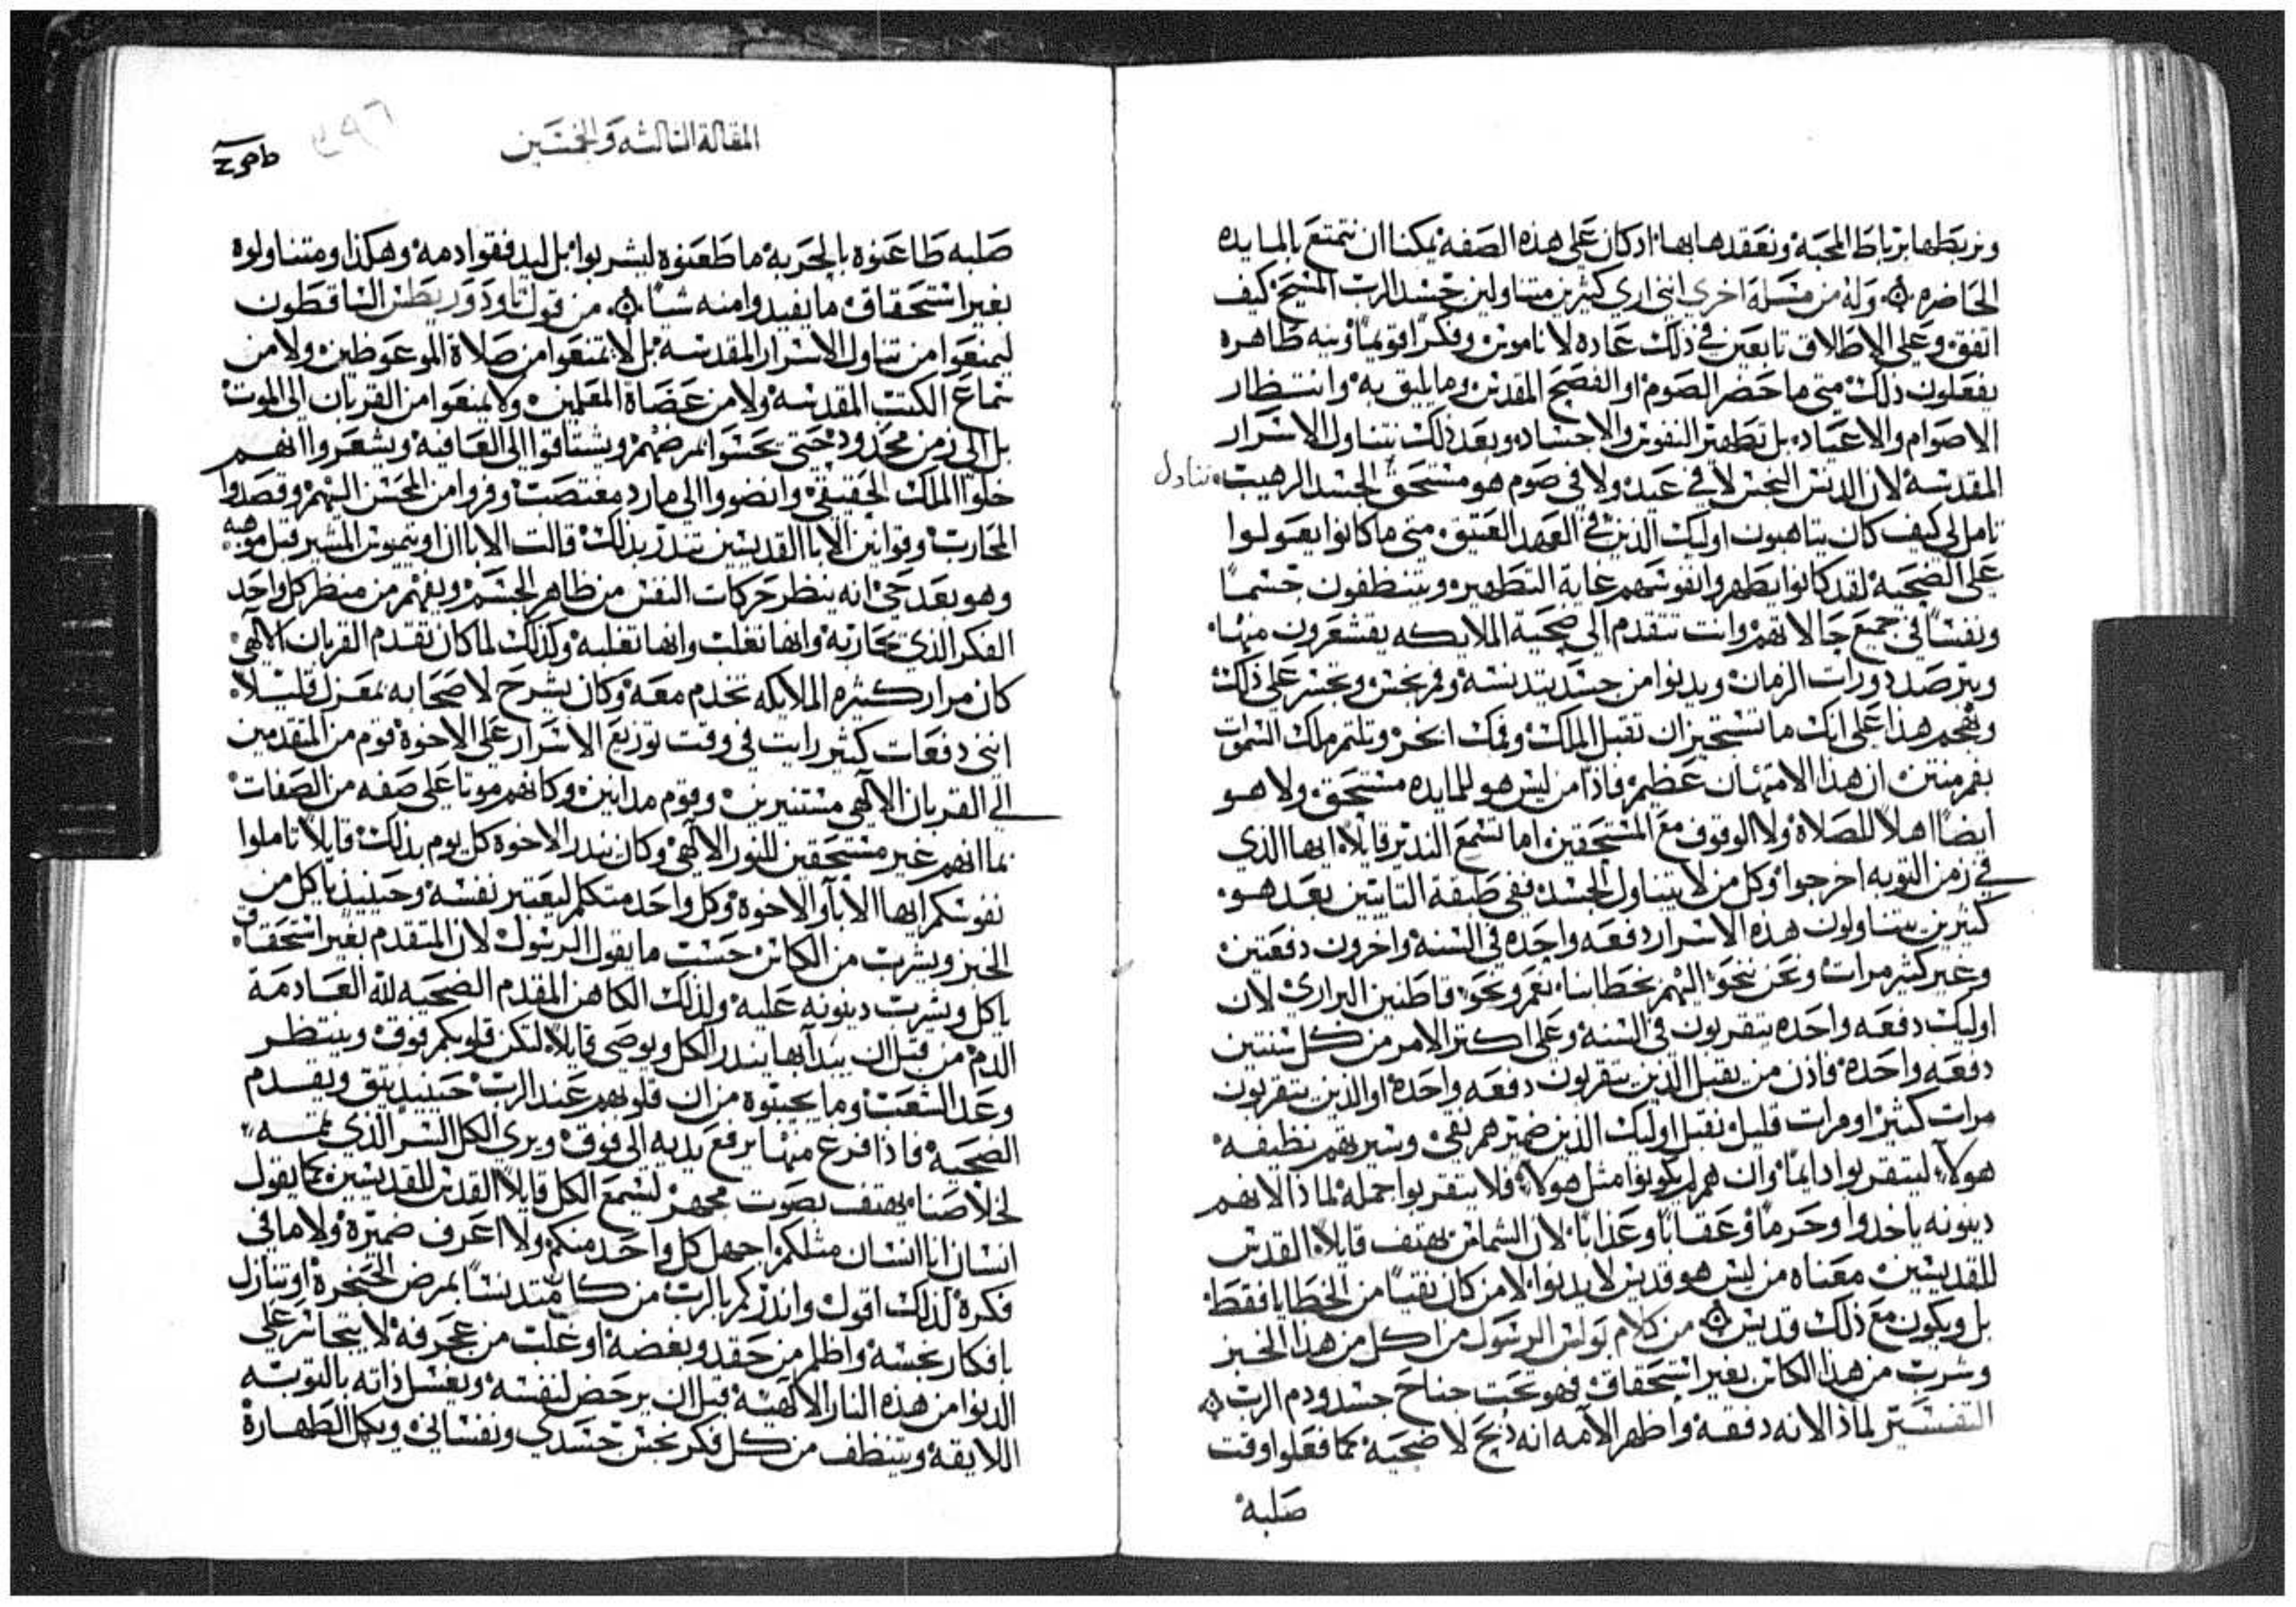 ونربطها برباط المحبه ونعقدها بها. اذ كان على هذه الصفه يمكنا ان نتمتع بالمايده
الحاضره ۞ وله من مسله اخرى انني اري كثيرين متناولين جسد الرب المسيح كيف
اتفق وعلى الاطلاق تابعين في ذلك عاده لا ناموس وفكراً قويماً ونيه طاهره
يفعلون ذلك متى ما حضر الصوم او الفصح المقدس وما يليق به وانتظار
الاصوام والاعياد بل تطهير النفوس والاجساد وبعد ذلك نتناول الاسرار
المقدسه لان الدنس النجس لا في عيد ولا في صوم هو مستحق الجسد الرهيب
تامل لي كيف كان يتاهبون اوليك الذين في العهد العتيق متى ما كانوا يعولوا
على الضحيه لقد كانوا يطهروا نفوسهم غاية التطهير ويتنظفون جسماً
ونفساً في جميع حالاتهم وانت تتقدم الى ضحية الملايكه يقشعرون منها
وتترصد دورات الزمان ويدنوا من جسد بتدنسه وفم نجس وتجسر على ذلك
هذا على انك ما تستجيز ان تقبل الملك وفمك ابخر وتلثم ملك السموات
بفم منتن ان هذا الامتهان عظيم فاذا من ليس هو للمايده مستحق ولا هو
ايضاً اهلاً للصلاة ولا الوقوف مع المستحقين اما تسمع النذير قايلاً ايها الذي
في زمن التوبه اخرجوا وكل من لا يتناول الجسد ففي طبقة التايبين بعد هو
كثيرين يتناولون هذه الاسرار دفعه واحده في السنه واخرون دفعتين
وغير كثير مرات ونحن نحو اليهم بخطابنا نعم ونحو قاطنين البراري لان
اوليك دفعه واحده يتقربون في السنه وعلى اكتر الامر من كل سنتين
دفعه واحدة فاذن من يقبل الذين يتقربون دفعه واحدة او الذين يتقربون
مرات كثير او مرات قليل نقبل اوليك الذين ضميرهم نقي وسيرتهم نظيفه
هولاء ليتقربوا دايماً وان هم لم يكونوا مثل هولاء فلا يتقربوا جمله لماذا لانهم
دينونه ياخدوا وحرماً وعقاباً وعذاباً لان الشماس يهتف قايلاً القدس
للقديسين معناه من ليس هو قديس لا يدنوا الا من كان نقياً من الخطايا فقط
بل ويكون مع ذلك قديس ۞ من كلام بولس الرسول من اكل من هذا الخبز
وشرب من هذا الكاس بغير استحقاق فهو تحت جناح جسد ودم الرب ۞
التفسير لماذا لانه دفقه واظهر الامه انه ذبح لا ضحيه كما فعلوا وقت
صلبه
تناول
المقالة الثالثه والخمسين
صلبه طاعنوه بالحربه ما طعنوه ليشربوا بل ليدفقوا دمه وهكذا ومتناولوه
بغير استحقاق ما يفيدوا منه شياً ۞ من قول تاودوريطس الساقطون
ليمنعوا من تناول الاسرار المقدسه بل لا يمنعوا من صلاة الموعوظين ولا من
سماع الكتب المقدسه ولا من عضاة المعلمين ولا يمنعوا من القربان الى الموت
بل الى زمن محدود حتى يحسوا بمرضهم ويشتاقوا الى العافيه ويشعروا انهم
خلوا الملك الحقيقي وانضووا الى مارد مغتصب وفروا من المحسن اليهم وقصدوا
المحارب وقوانين الابا القديسين تنذر بذلك قالت الابا ان اوتيموس المشير قبل موته
وهو بعد حي انه ينظر حركات النفس من ظاهر الجسم ويفهم من منظر كل واحد
الفكر الذي تحاربه وانها تغلب وانها تغلبه وكذلك لما كان تقدم القربان الالهي
كان مرار كثيره الملايكه تخدم معه وكان يشرح لاصحابه بمعزل قايلاً
انني دفعات كثير رايت في وقت توزيع الاسرار على الاخوة قوم من المتقدمين
الى القربان الالهي مستنيرين وقوم مدانين وكانهم موتا على صفه من الصفات
بما انهم غير مستحقين للنور الالهي وكان ينذر الاخوه كل يوم بذلك قايلاً تاملوا
نفوسكم ايها الابا والاخوة وكل واحد منكم ليعتبر نفسه وحينيذ ياكل من
الخبز ويشرب من الكاس حسب ما يقول الرسول لان المتقدم بغير استحقاق
ياكل ويشرب دينونه عليه ولذلك الكاهن المقدم الضحيه لله العادمة
الدم من قبل ان يبدا بها ينذر الكل ويوصي قايلاً لتكن قلوبكم فوق وينتظر
وعد الشعب وما يجيبوه من ان قلوبهم عند الرب حينيذ يثق ويقدم
الضحيه فاذا فرغ منها يرفع يديه الى فوق ويري الكل السر الذي تممه
لخلاصنا يهتف بصوت مجهر ليسمع الكل قايلاً القدس للقديسين كما يقول
انسان انا انسان مثلكم اجهل كل واحد منكم ولا اعرف ضميرة ولا ما في
فكرة لذلك اقول وانذركم بالرب من كان متدنساً بمرض الحنجرة او تنازل
بافكار نجسه واظلم من حقد وبغضه او غلب من عجرفه لا يتجاسر على
الدنوا من هذه النار الالهيه قبل ان يرحض لنفسه ويغسل ذاته بالتوبه
اللايقه ويتنظف من كل فكر نجس جسدي ونفساني وبكل الطهارة